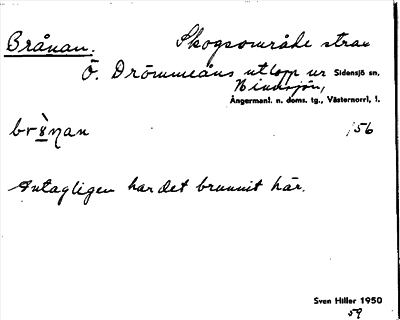 Brånan. Skogsområde strax
Ö. Drömmeåns utlopp ur Sidensjö sn.
Bindsjön,
Ångermanl. n. doms. tg., Västernorrl. l.
156
Antagligen har det brunnit här.
Sven Hiller 1950
59